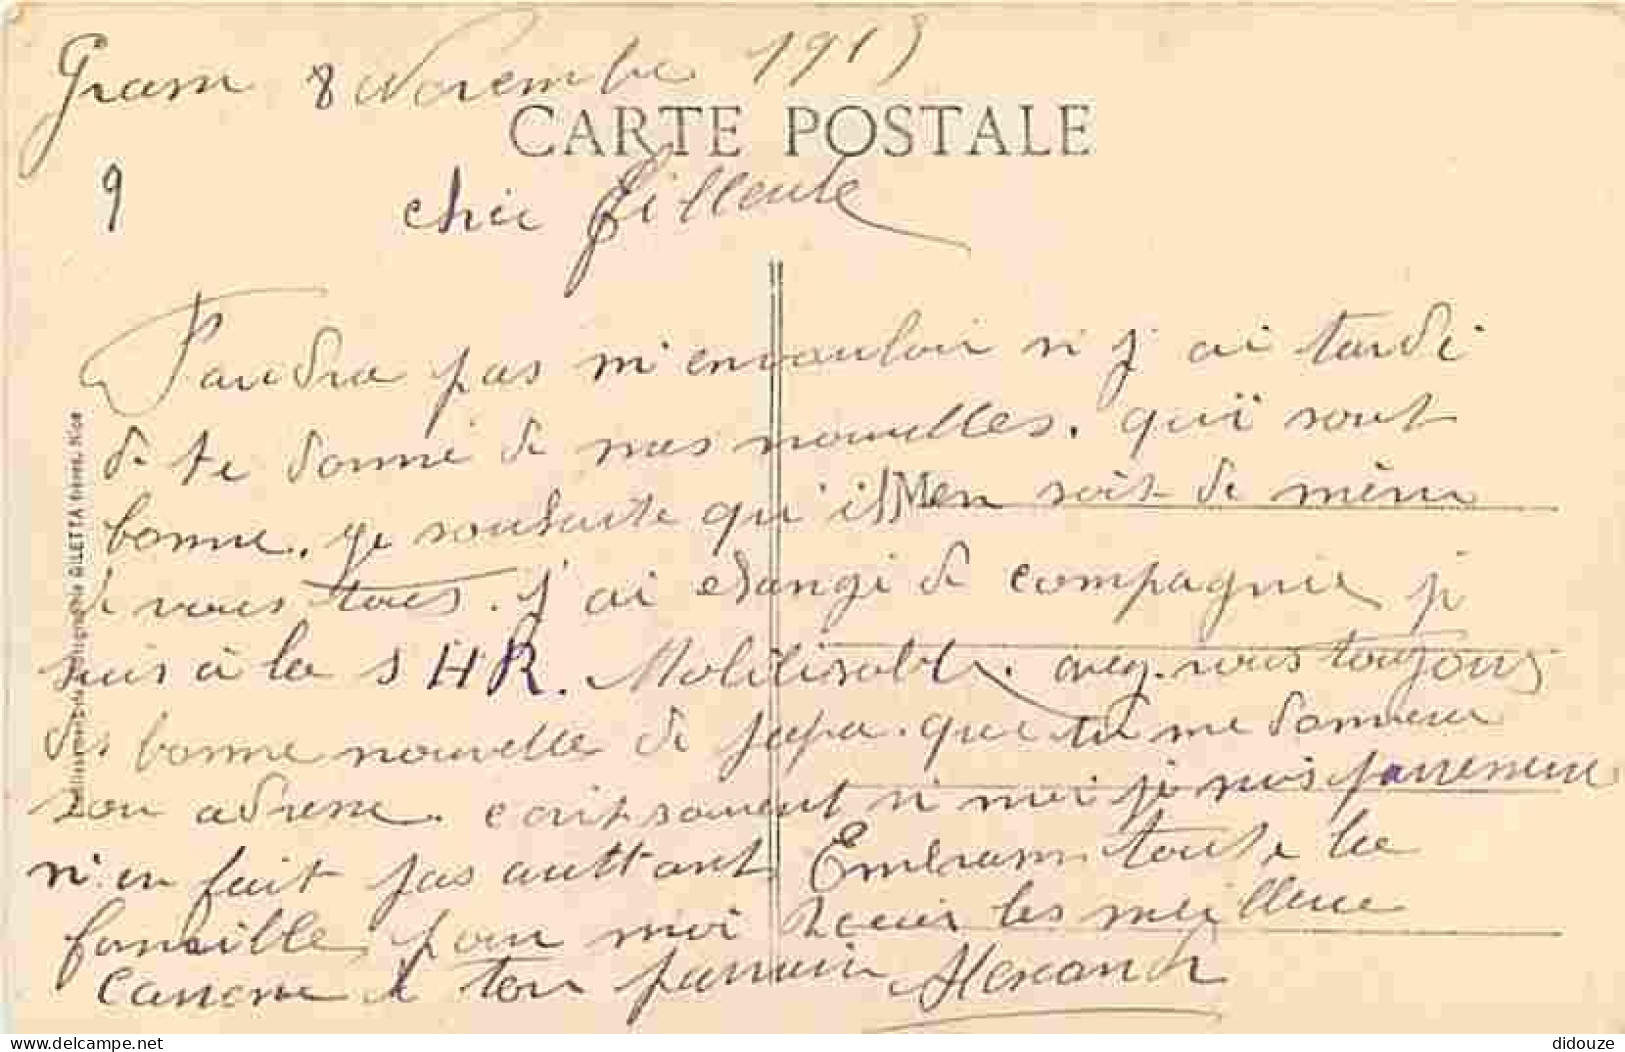 8 Novembre 1915
CARTE POSTALE
9
cher filleule
Faudra pas m'envouloir si j'ai tardé
de te donné de nos nouvelles. qui sont
bonne. je souhaite qu'il en soit de même
de vous tous. j'ai changé de compagnie je
suis à la SHR. Mobilisable. avez-vous toujours
des bonne nouvelle de papa. que tu me donneras
son adresse. ecrit souvent si moi je suis paresseuse
n'en fait pas auttant Embrasse toute la
famille pour moi recevoir les meilleure
caresse de ton parrain Alexandre
GILETTA frères, Nice
www.delcampe.net
didouze